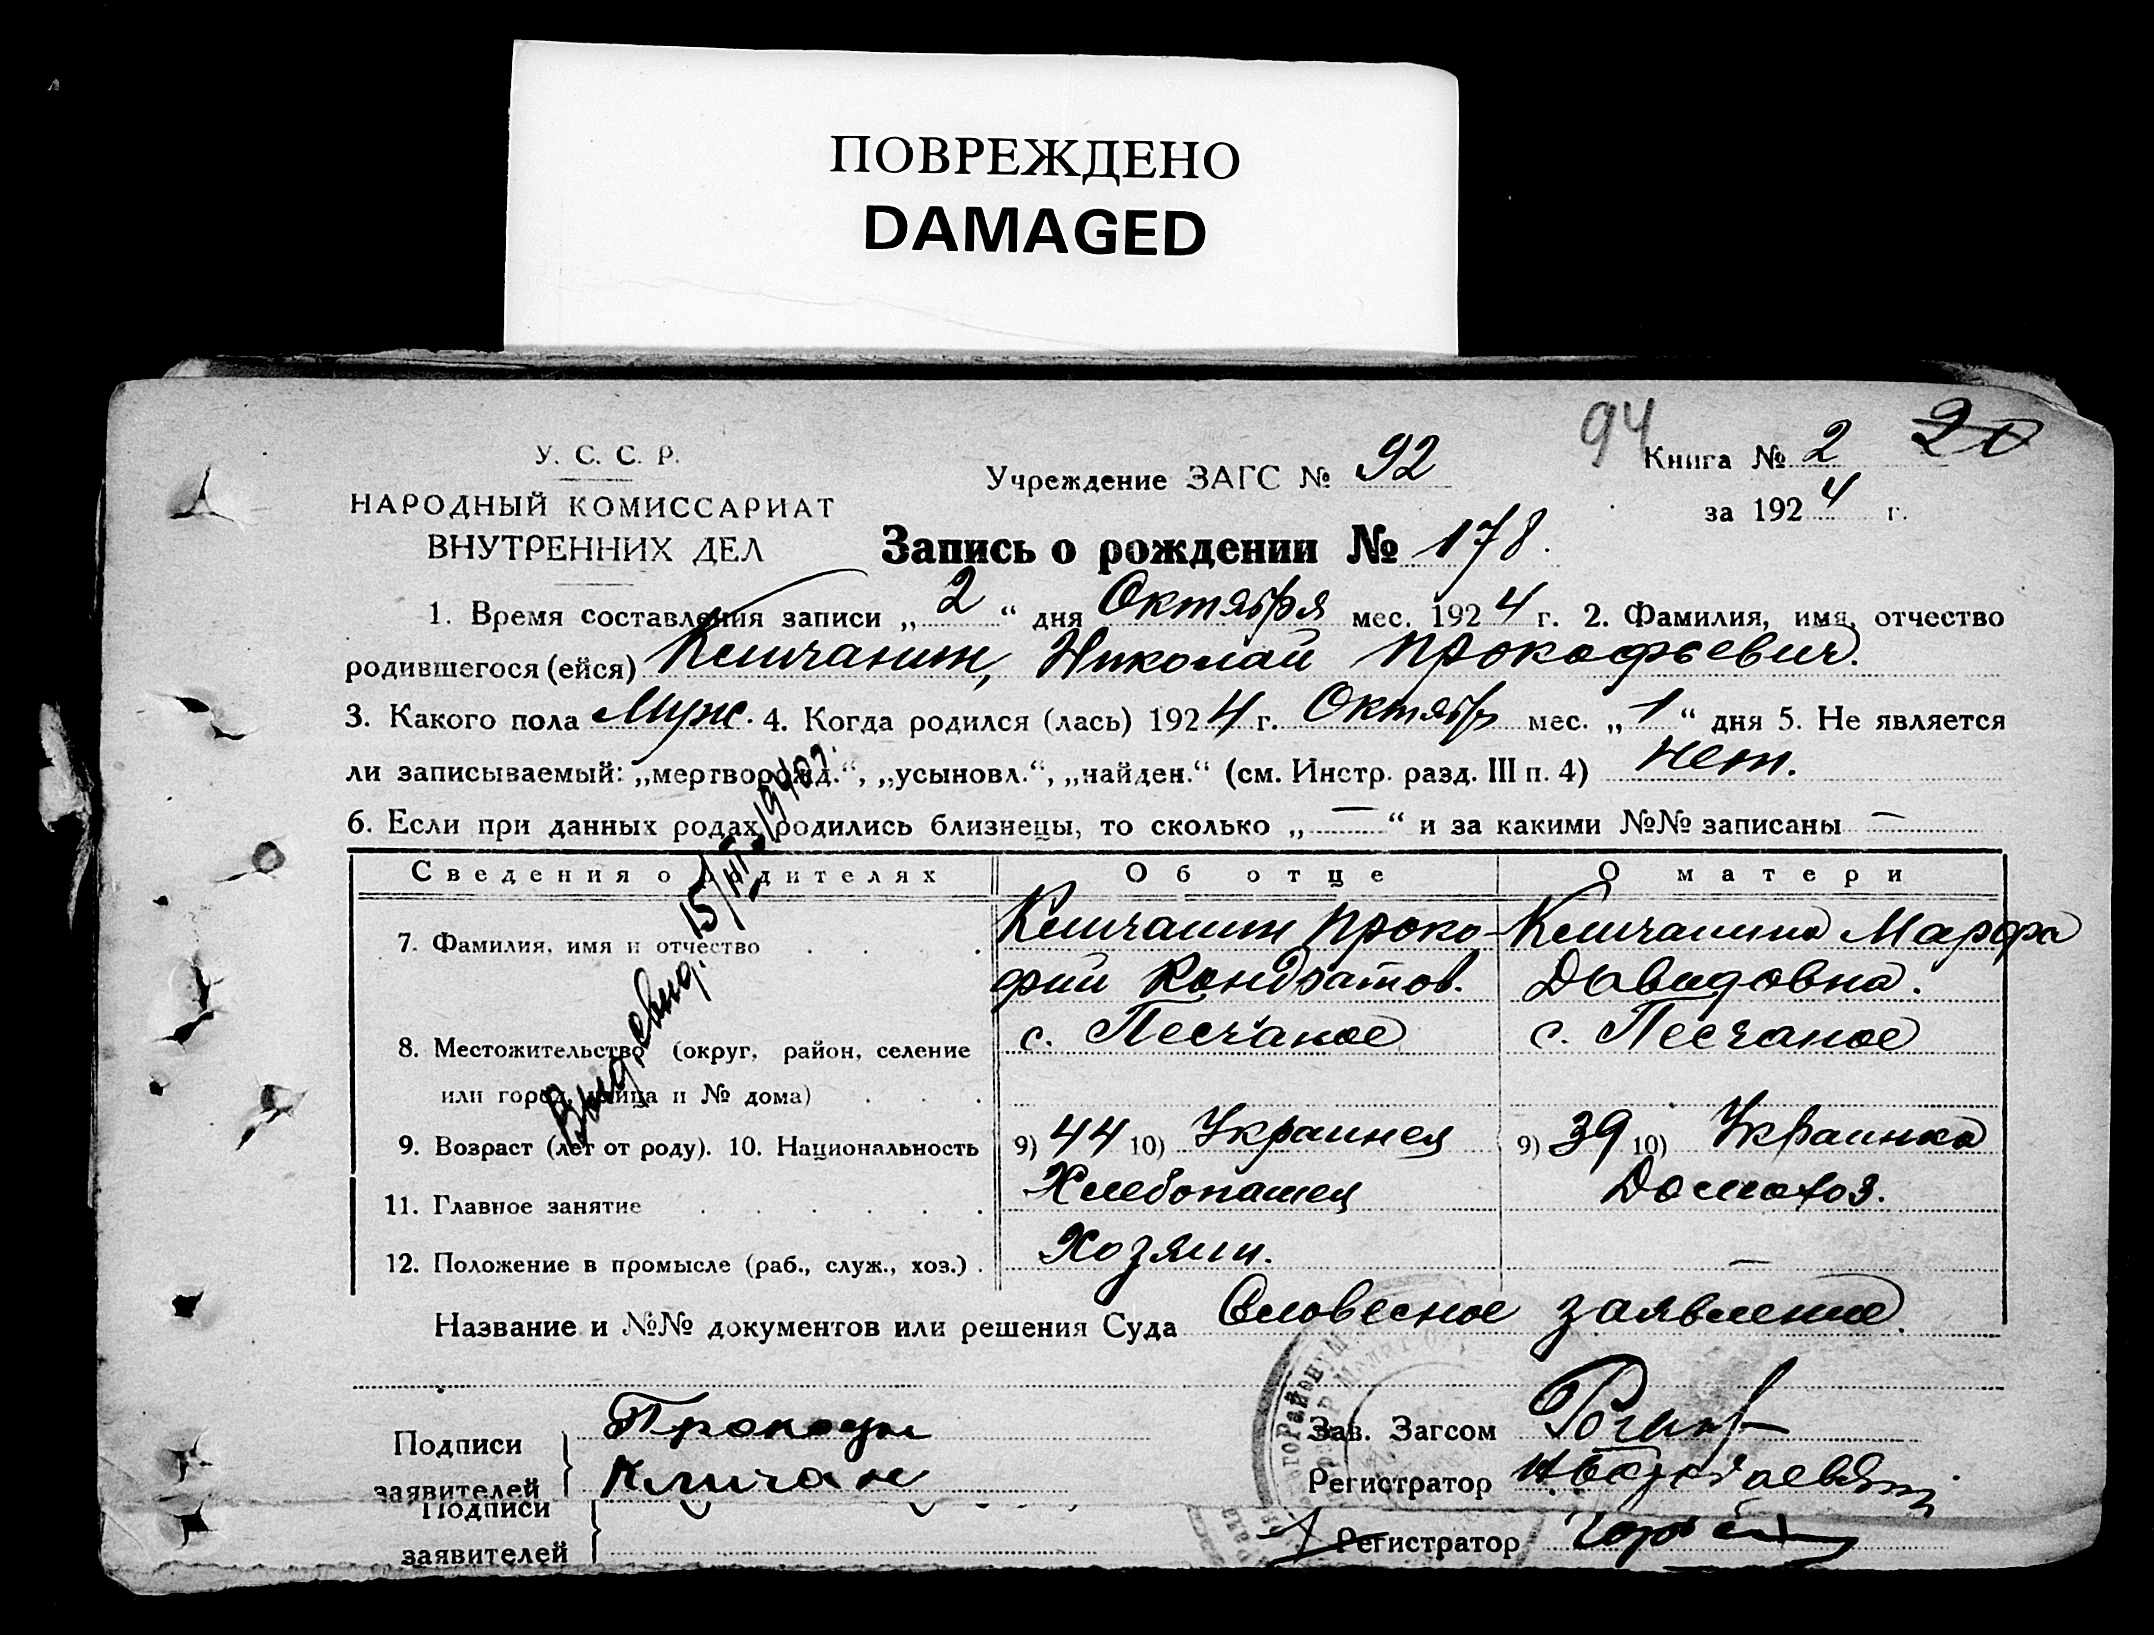 ПОВРЕЖДЕНО
DAMAGED
94
20
У. С. С. Р.
НАРОДНЫЙ КОМИССАРИАТ
ВНУТРЕННИХ ДЕЛ
Учреждение ЗАГС № 92
Книга № 2
за 1924 г.
Запись о рождении № 178.
1. Время составления записи „2“ дня Октября мес. 1924 г. 2. Фамилия, имя, отчество
родившегося (ейся) Кличанин, Николай Прокофьевич.
3. Какого пола Муж. 4. Когда родился (лась) 1924 г. Октябр мес. „1“ дня 5. Не является
ли записываемый: „мертворожд.“, „усыновл.“, „найден.“ (см. Инстр. разд. III п. 4) нет.
6. Если при данных родах родились близнецы, то сколько „—“ и за какими №№ записаны —
Сведения о родителях Об отце О матери
7. Фамилия, имя и отчество . . . Кличанин Проко- Кличанина Марфа
фий Кондратов. Давидовна.
8. Местожительство (округ, район, селение с. Песчаное с. Песчаное
или город, улица и № дома) . . .
9. Возраст (лет от роду). 10. Национальность 9) 44 10) Украинец 9) 39 10) Украинка
11. Главное занятие . . . . . . Хлебопашец Домохоз.
12. Положение в промысле (раб., служ., хоз.) . Хозяин. —
Выд. свид. 15/III 1940 г.
Название и №№ документов или решения Суда Словесное заявление.
Подписи
заявителей
Прокофи
Кличан
Зав. Загсом
Регистратор
Подписи
заявителей
Регистратор